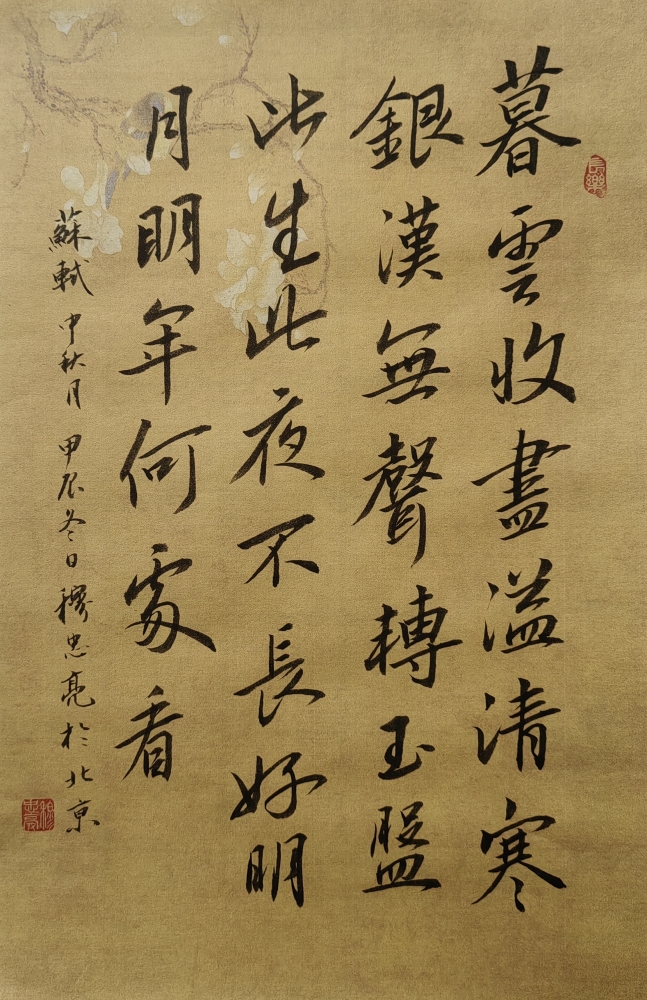 暮雲收盡溢清寒
銀漢無聲轉玉盤
此生此夜不長好明
月明年何處看
蘇軾中秋月 甲辰冬日穆忠亮於北京
長樂
穆忠亮